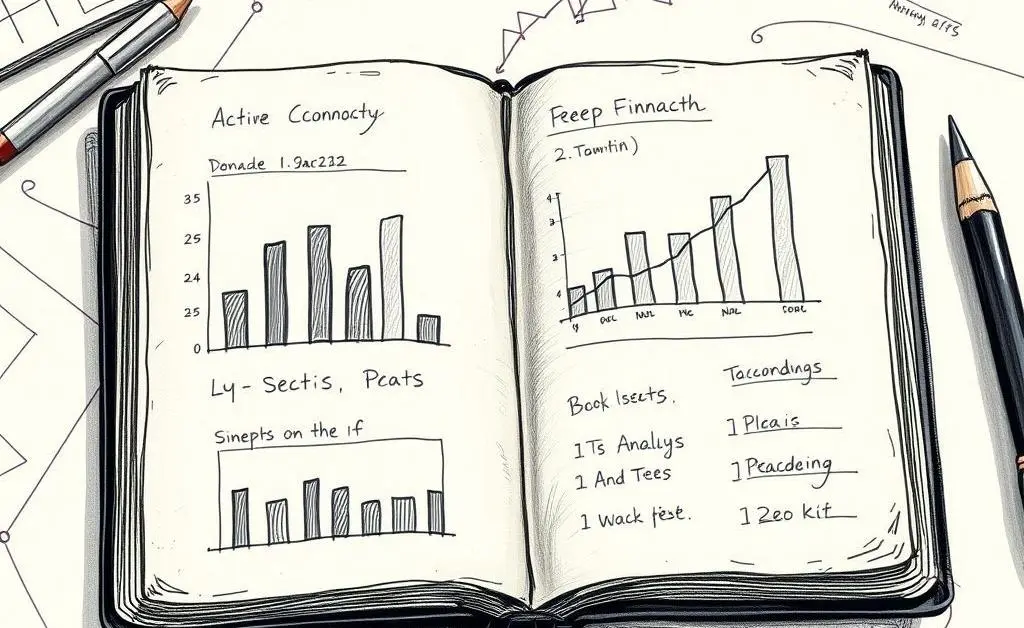 Active Cconnocty
Donade 1.9ac232
35
25
24
25
0
Ly - Sectis, Pcats
Sinepts on the if
Feeep Finnacth
2. Tawntin)
4
3
3
4
Book Isects.
1 Ts Analys
1 And Tees
1 Wack fest.
Taccondings
1 Plcais
1 Peacdeing
1 Zeo Kit